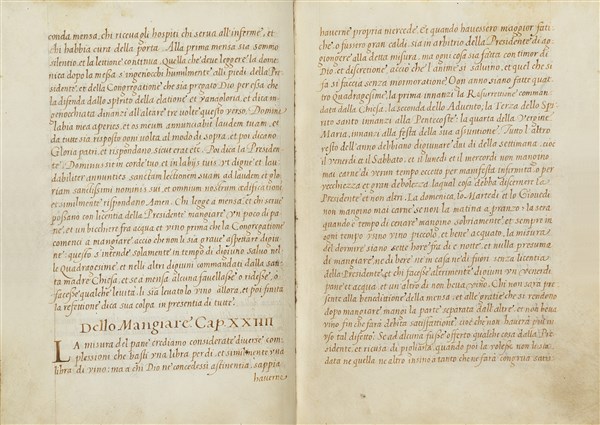 conda mensa, chi riceva gli hospiti chi serva all'inferme, et
chi habbia cura della porta. Alla prima mensa sia sommo
silentio, et la lettione continua. Quella che deve leggere la dome
nica dopo la messa s'ingenocchi humilmente alli piedi della Pre
sidente, et della Congregatione che sia pregato Dio per essa che
la difenda dallo spirito della elatione et vanagloria, et dica in
ginocchiata dinanzi all'altare tre volte questo verso. Domine
labia mea aperies, et os meum annuntiabit laudem tuam, et
da tutte sia risposto ogni volta al modo di sopra, et poi dicano
Gloria patri, et rispondano, sicut erat etc. Poi dica la Presiden
te. Dominus sit in corde tuo, et in labijs tuis, vt digne et lau
dabiliter annunties sanctam lectionem suam ad laudem et gloriam
sanctissimi nominis sui, et omnium nostram ædificationem
et similmente rispondano Amen. Chi legge a mensa, et chi serve
possano con licentia della Presidente mangiare vn poco di pa
ne, et un bicchiere fra acqua et vino prima che la Congregatione
comenci a mangiare, accio che non le sia grave aspettare digiu
ne: questo s'intende solamente in tempo di digiuno, salvo nel
le Quadragesime, et nelli altri digiuni commandati dalla san
ta madre Chiesa, et se a mensa alcuna favellasse o ridesse, o
facesse qualche levità, li sia levato lo vino allora, et poi finita
la refettione dica sua colpa in presentia di tutte.
Dello Mangiare Cap XXIIII
LA misura del pane crediamo considerate diverse com
plessioni che basti vna libra per di, et similmente vna
libra di vino; ma a chi Dio ne concedessi astinenza, sappia
haverne
haverne propria mercede. Et quando havessero maggior fati
che, o fussero gran caldi, sia in arbitrio della Presidente di ag
giongere alla detta misura, ma ogni cosa sia fatta con timor di
Dio, et discretione, accio che l'anime si salvino, et quel che si
fa si faccia senza mormoratione. Ogn' anno siano fatte quat
tro Quadragesime, la prima innanzi la Resurrettione comman
data dalla Chiesa, la seconda dello Advento, la Terza dello Spi
rito santo innanzi alla Pentecoste, la quarta della Vergine
Maria, innanzi alla festa della sua assuntione. Tutto l'altro
resto dell'anno debbiano digiunare dui di della settimana, cioè
il venerdi, e il Sabbato, et il lunedi et il mercordi non mangino
mai carne di verun tempo eccetto per manifesta infirmità, o per
vecchiezza, et gran debolezza, la qual cosa debba discernere la
Presidente et non altri. La domenica, lo Martedi, et lo Giovedi
non mangino mai carne se non la matina a pranzo, la sera
quando è tempo di cenare mangino sobriamente, et sempre in
ogni tempo vino vino piccolo, et bene acquato, la misura
del dormire siano sette hore fra di e notte, et nulla presuma
di mangiare, ne di bere, ne in casa ne di fuori senza licentia
della Presidente, et chi facesse altrimente digiuni vn venerdi
pane et acqua, et un altro di non beva vino. Chi non sarà pre
sente alla benedittione della mensa, et alle gratie che si rendono
dopo mangiare, mangi la parte separata dall'altre, et non beva
vino fin che farà debita satisfattione, cioè che non haverà più in
vso tal difetto. Se ad alcuna fusse offerto qualche cosa dalla Pre
sidente, et ricusa di pigliarla, quando poi la volesse non le sia
data ne quella ne altro insino a tanto che non farà congrua satis